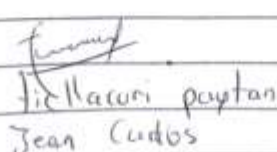 Ticllacuri paytan
Jean Carlos